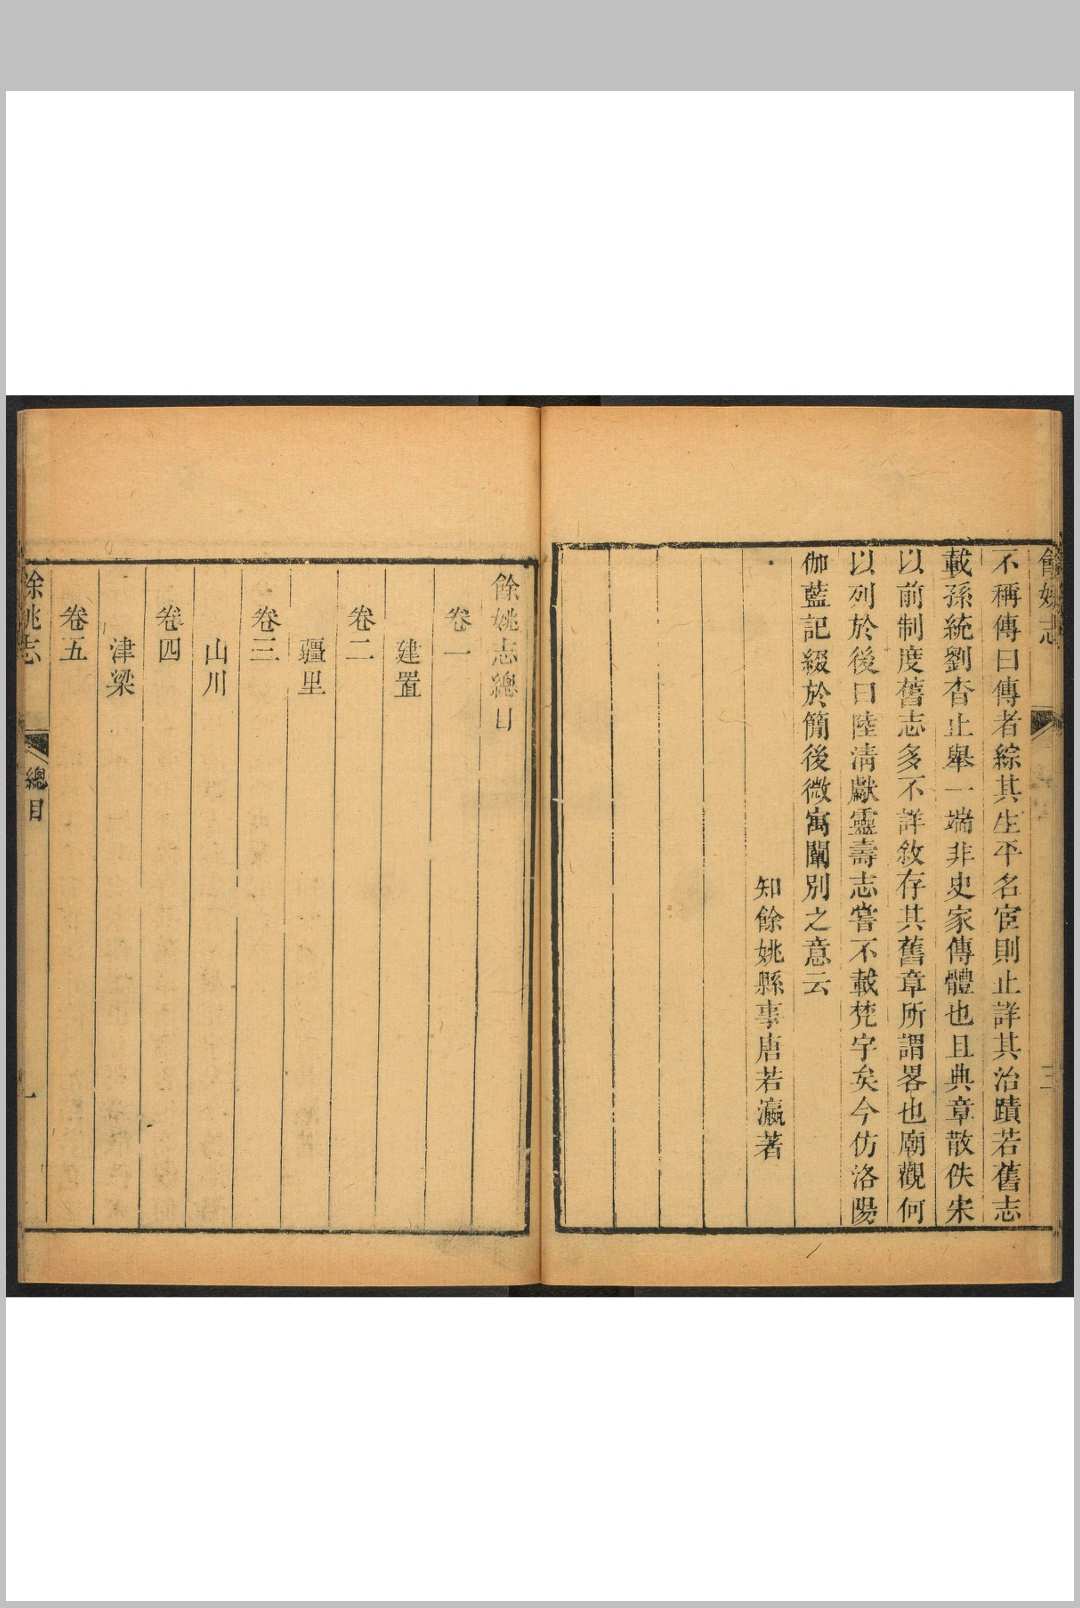 餘姚志
不稱傳曰傳者綜其生平名宦則止詳其治蹟若舊志
載孫統劉杳止舉一端非史家傳體也且典章散佚宋
以前制度舊志多不詳敘存其舊章所謂畧也廟觀何
以列於後曰陸清獻靈壽志嘗不載梵宇矣今仿洛陽
伽藍記綴於簡後微寓闡別之意云
知餘姚縣事唐若瀛著
三
餘姚志總目
卷一
建置
卷二
疆里
卷三
山川
卷四
津梁
卷五
餘姚志
總目
一